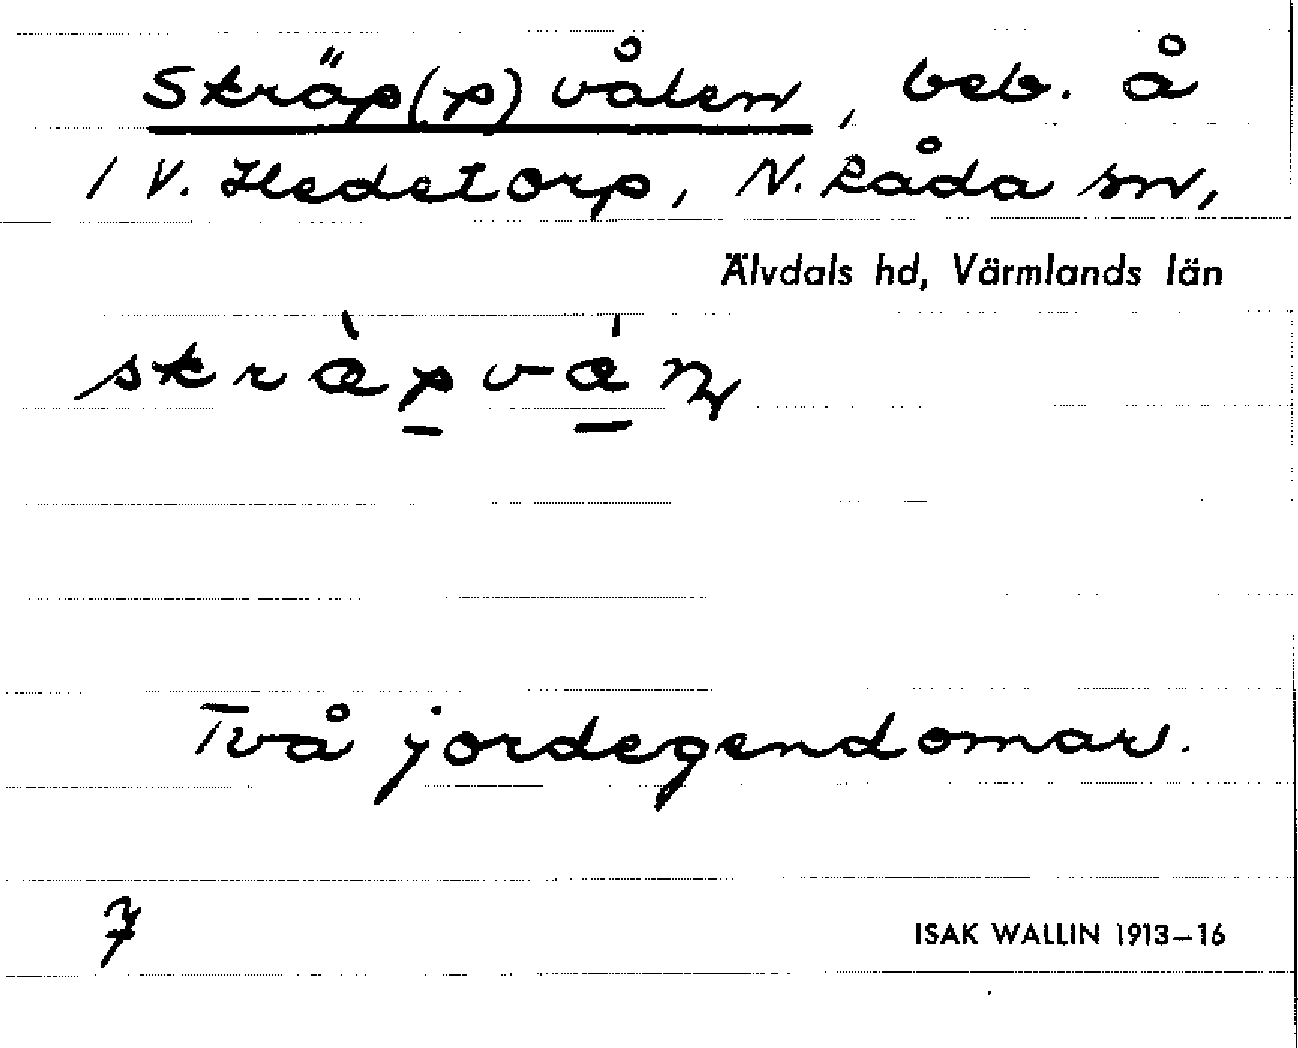 Skräp(p)vålen, beb. å
1 V. Hedetorp, N. Råda sn,
Älvdals hd, Värmlands län
Två jordegendomar.
7
ISAK WALLIN 1913–16